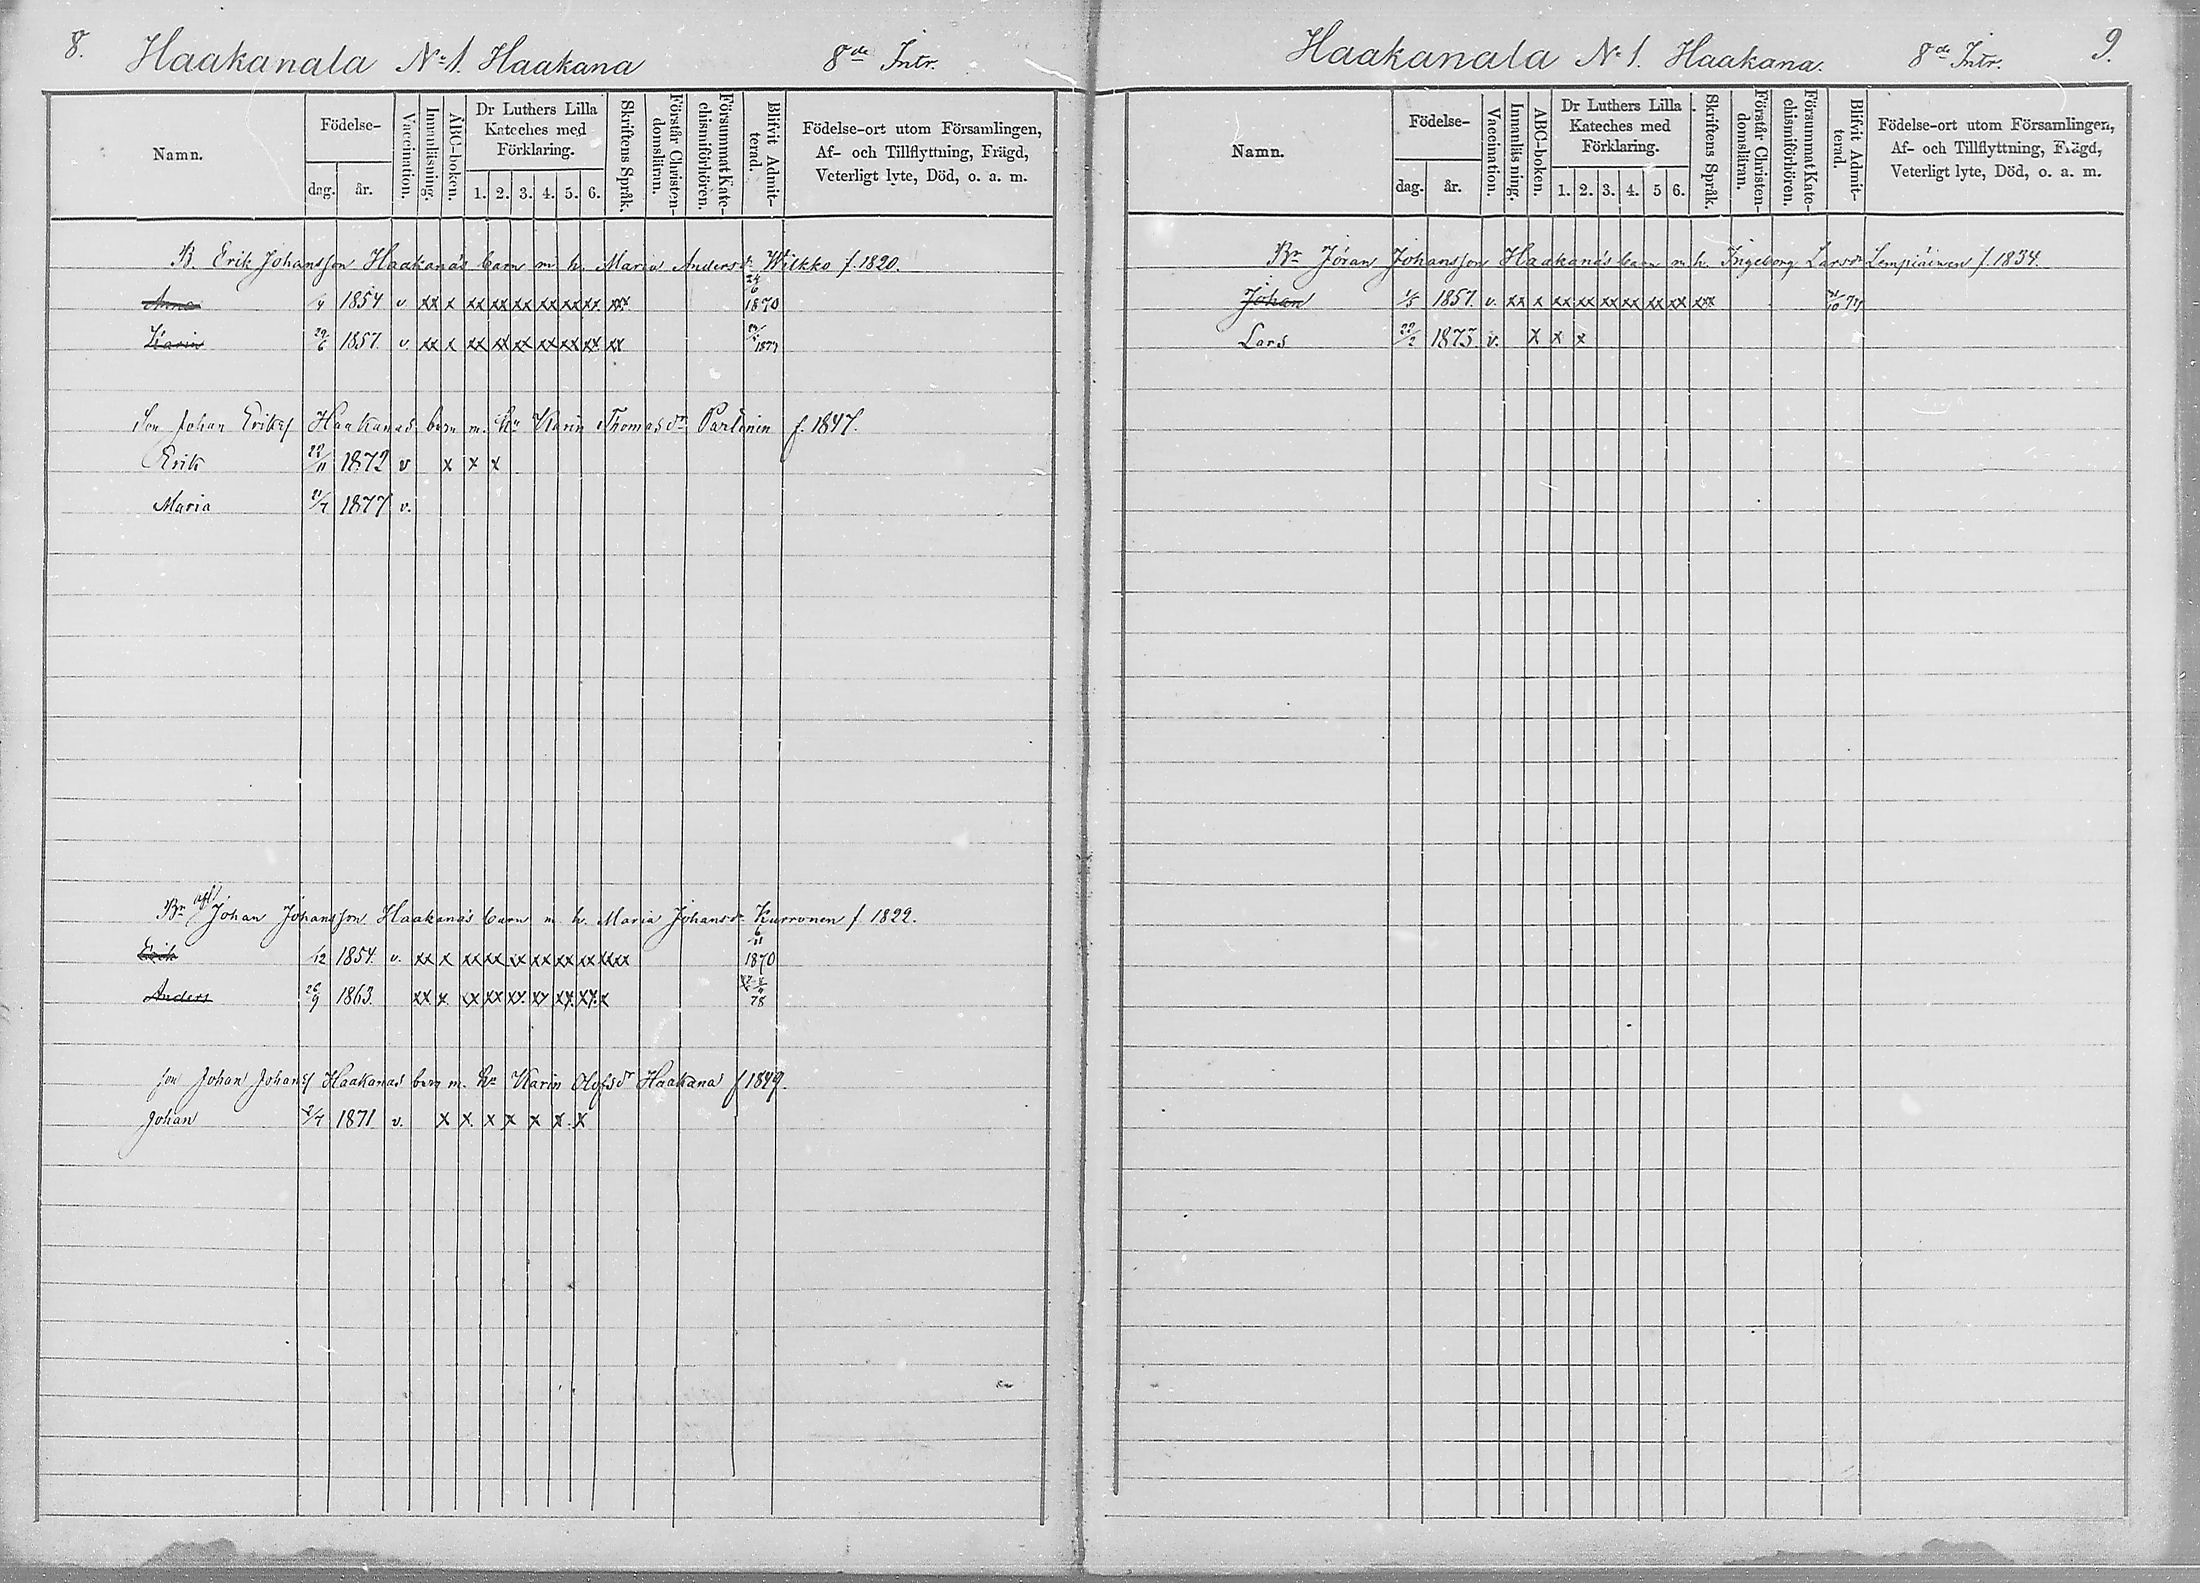 8. Haakanala No 1. Haakana 8de Intr.
Namn.
Födelse-
dag. år.
Vaccination.
Innanläsning.
ABC-boken.
Dr Luthers Lilla
Kateches med
Förklaring.
1. 2. 3. 4. 5. 6.
Skriftens Språk.
Förstår Christen-
domsläran.
Försummat Kate-
chismiförhören.
Blifvit Admit-
terad.
Födelse-ort utom Församlingen,
Af- och Tillflyttning, Frägd,
Veterligt lyte, Död, o. a. m.
B. Erik Johansson Haakana's barn m h. Maria Andersdr Wilkko f. 1820.
Anna 1854 v xx x xx xx xx xx xx xx xxx 24/6 1870
Karin 29/6 1857. v xx x xx xx xx xx xx xx xx
Son Johan Eriks Haakanas barn m. hu Karin Thomasdr Partinin f. 1847.
Erik 22/11 1872 v x x x
Maria 21/7 1877 v.
Br afl Johan Johansson Haakana's barn m h. Maria Johansdr Kurronen f 1822.
Erik /12 1854. v. xx x xx xx xx xx xx xx xxx 6/11 1870
Anders 26/9 1863. xx x xx xx xx xx xx xx x 78
son Johan Johans Haakanas barn m. hu Karin Olofsdr Haakana f 1849.
Johan 1871 v. x x x x x x x
Haakanala No 1. Haakana. 8de Intr. 9.
Namn.
Födelse-
dag. år.
Vaccination.
Innanläsning.
ABC-boken.
Dr Luthers Lilla
Kateches med
Förklaring.
1. 2. 3. 4. 5 6.
Skriftens Språk.
Förstår Christen-
domsläran.
Försummat Kate-
chismiförhören.
Blifvit Admit-
terad.
Födelse-ort utom Församlingen,
Af- och Tillflyttning, Frägd,
Veterligt lyte, Död, o. a. m.
Br Jöran Johansson Haakana's barn m h. Ingeborg Larsdr Lempiäinen f. 1834.
Johan 1/5 1857. v. xx x xx xx xx xx xx xx xxx
Lars 22/2 1873. v. x x x